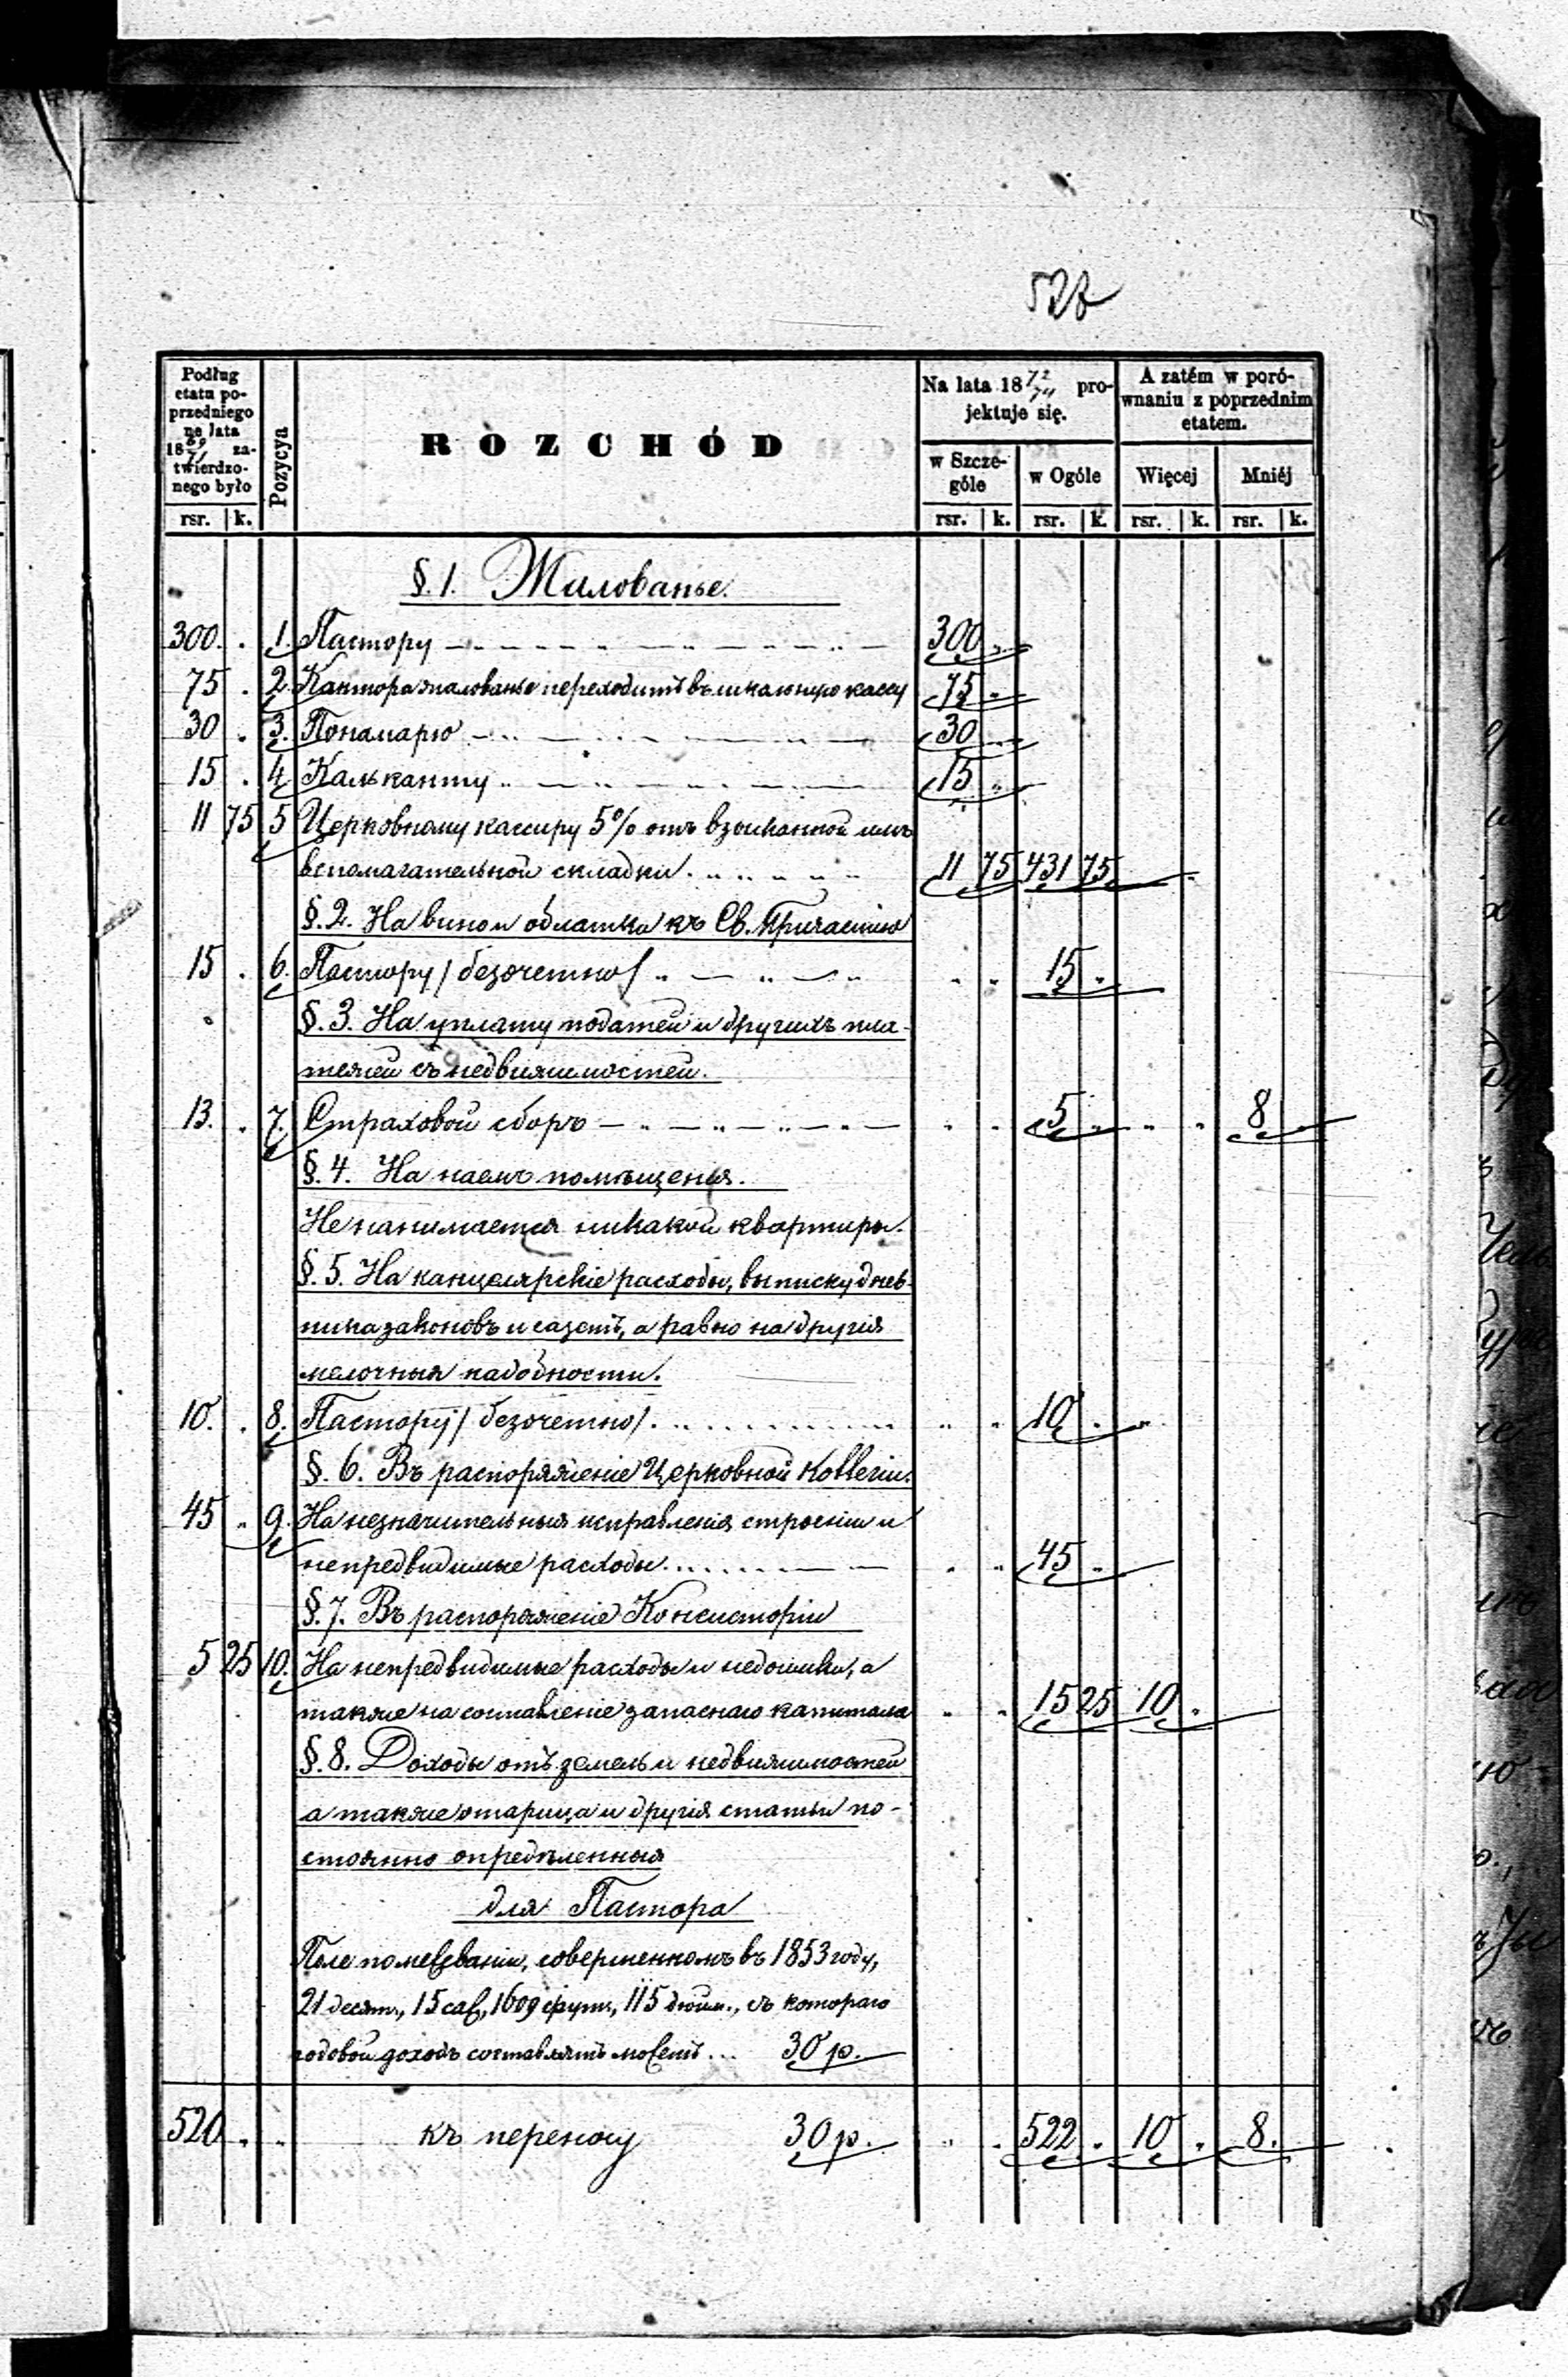 Podług
etatu po-
przedniego
na lata
18 69/71 za-
twierdzo-
nego było
Pozycya
ROZCHÓD
Na lata 18 72/74 pro-
jektuje się.
A zatém w poró-
wnaniu z poprzednim
etatem.
w Szcze-
góle
w Ogóle
Więcej
Mniéj
rsr. k. rsr. k. rsr. k. rsr. k. rsr. k.
§.1. Жалованье.
300. 1. Пастору 300
75 2 Кантора жалованье переходитъ въ школьную кассу 75
30 3. Пономарю 30
15 4 Кальканту 15
11 75 5 Церковному кассиру 5% отъ взысканной имъ
вспомагательной складки 11 75 431 75
§.2. На вино и облатки къ Св. Причастію
15 6. Пастору /безочетно/ 15
§.3. На уплату податей и другихъ пла-
тежей съ недвижимостей.
13. 7. Страховой сборъ 5 8
§.4. На наемъ помѣщенія.
Не нанимается никакой квартиры.
§.5. На канцелярскіе расходы, выписку днев-
ника законовъ и газетъ, а равно на другія
мелочныя надобности.
10. 8. Пастору /безочетно/. 10
§.6. Въ распоряженіе Церковной Коллегіи.
45 9. На незначительныя исправленія строеній и
непредвидимые расходы 45
§.7. Въ распоряженіе Консисторіи
5 25 10. На непредвидимые расходы и недоимки, а
также на составленіе запаснаго капитала 15 25 10
§.8. Доходы отъ земель и недвижимостей
а также и другія статьи по-
стоянно опредѣленныя
для Пастора
Поле по межеваніи, совершенномъ въ 1853 году,
21 десят., 15 саж., 1609 фут., 115 дюйм., съ котораго
годовой доходъ составлять можетъ... 30 р.
520 къ переносу 30 р. 522 10 8.